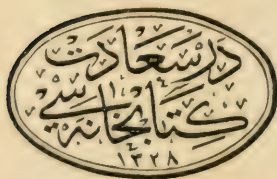 درسعادت
كتابخانه سی
١٣٢٨